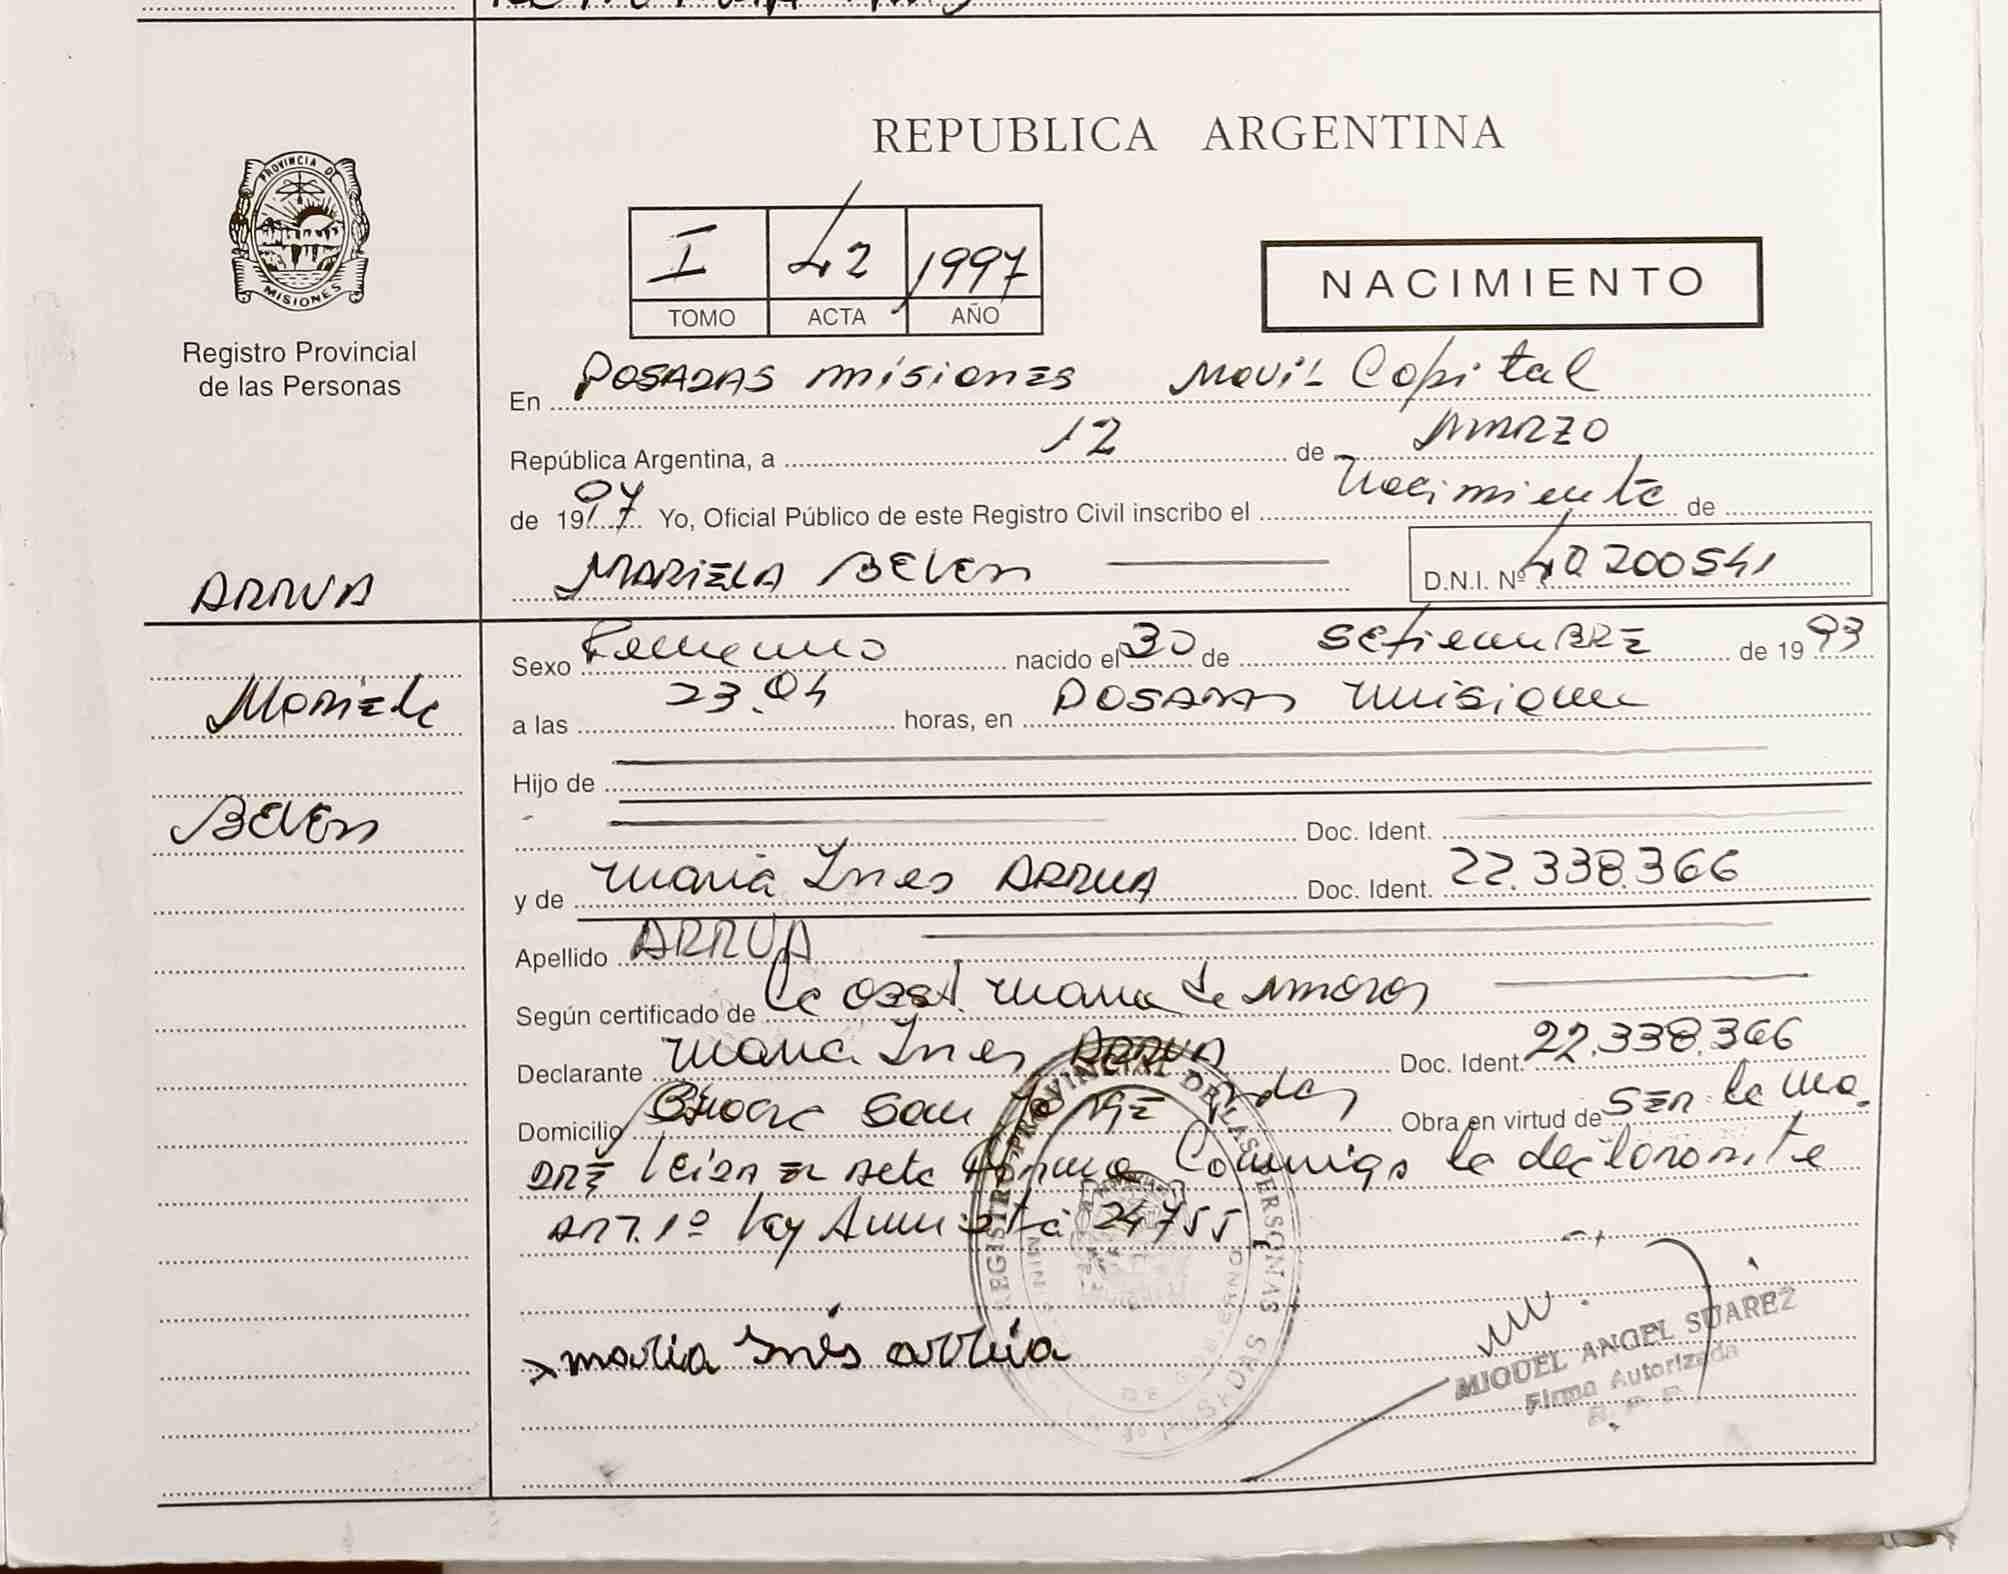 REPUBLICA ARGENTINA
PROVINCIA DE
MISIONES
Registro Provincial
de las Personas
I 42 1997
TOMO ACTA AÑO
NACIMIENTO
En POSADAS misiones Movil Capital
República Argentina, a 12 de MARZO
de 1997 Yo, Oficial Público de este Registro Civil inscribo el Nacimiento de
MARIELA BELEN D.N.I. Nº 40200541
ARRUA
Mariela
BELEN
Sexo Femenino nacido el 30 de SETIEMBRE de 1993
a las 23.04 horas, en POSADAS misiones
Hijo de
Doc. Ident.
y de Maria Ines ARRUA Doc. Ident. 22.338.366
Apellido ARRUA
Según certificado de la Maria de
Declarante Maria Ines ARRUA Doc. Ident. 22.338.366
Domicilio San JORGE Obra en virtud de SER la ma.
DRE leida el acta firma Conmigo la declarante
ART. 1º ley Amnistia 24755
maria Inés arrúa
REGISTRO PROVINCIAL DE LAS PERSONAS
DE GOBIERNO
POSADAS
MIGUEL ANGEL SUAREZ
Firma Autorizada